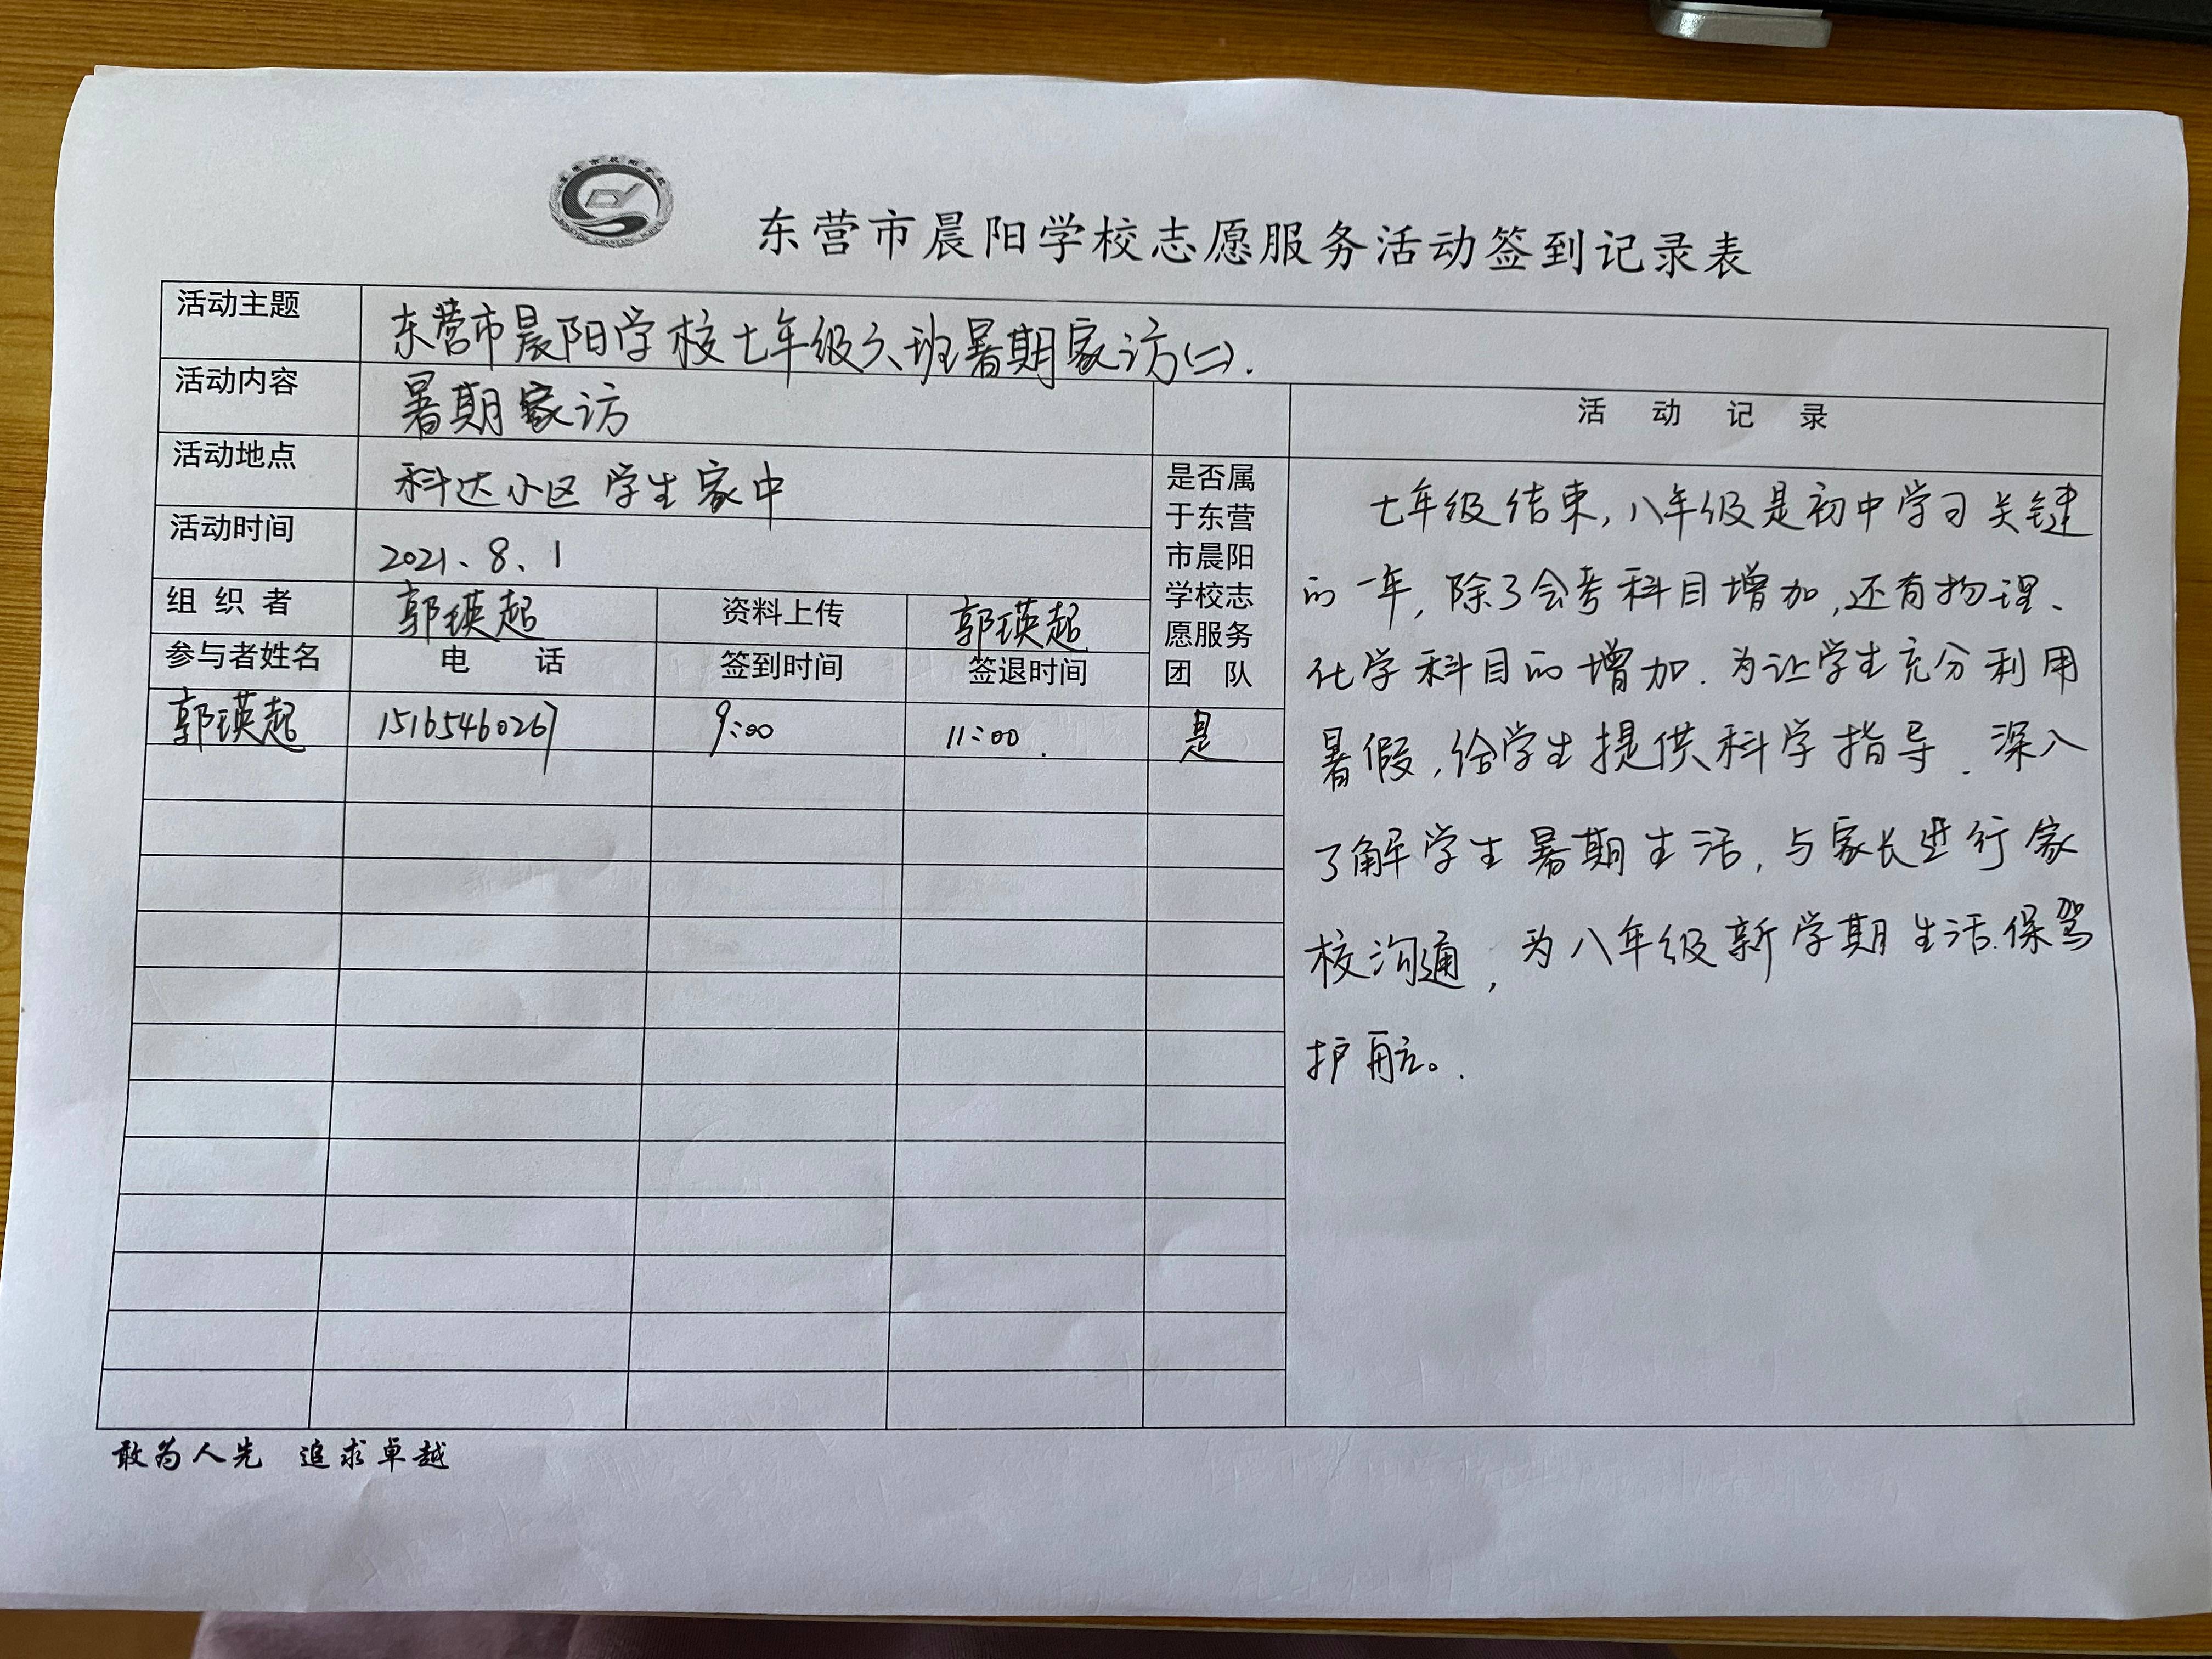 东营市晨阳学校志愿服务活动签到记录表
活动主题 东营市晨阳学校七年级六班暑期家访(二).
活动内容 暑期家访
活动地点 科达小区 学生家中
活动时间 2021、8、1
组 织 者 郭瑛起 资料上传 郭瑛起
参与者姓名 电 话 签到时间 签退时间
是否属
于东营
市晨阳
学校志
愿服务
团 队
郭瑛起 15165460267 9:00 11:00. 是
活 动 记 录
七年级结束,八年级是初中学习关键
的一年,除了会考科目增加,还有物理、
化学科目的增加.为让学生充分利用
暑假,给学生提供科学指导.深入
了解学生暑期生活,与家长进行家
校沟通,为八年级新学期生活保驾
护航。.
敢为人先 追求卓越